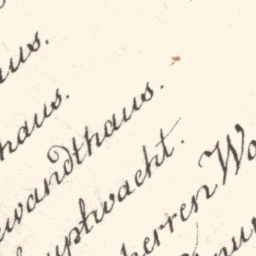 aus.
haus.
ewandthaus.
uptwacht.
herren Wa